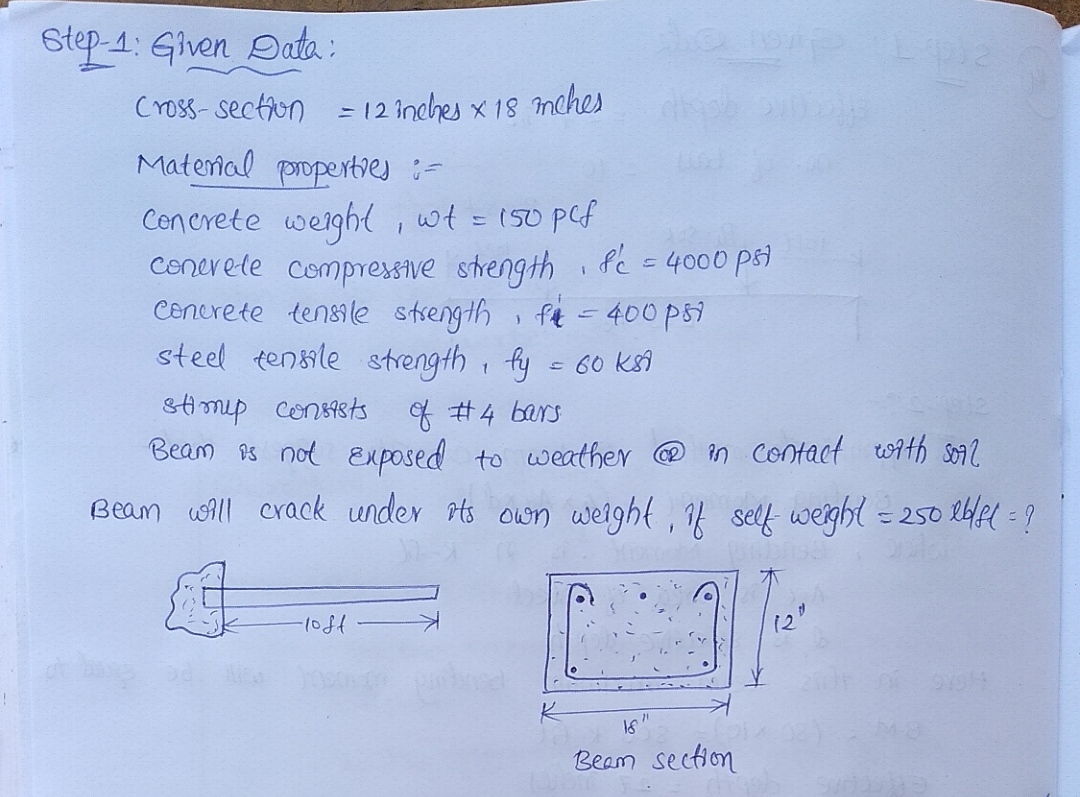 Step-1: Given Data:
Cross-section = 12 inches x 18 inches
Material properties :-
Concrete weight, wt = 150 pcf
Concrete compressive strength, f'c = 4000 psi
Concrete tensile strength, ft = 400 psi
steel tensile strength, fy = 60 ksi
stirrup consists of #4 bars
Beam is not exposed to weather or in contact with soil
Beam will crack under its own weight, if self-weight = 250 lb/ft = ?
10ft
12"
18"
Beam section